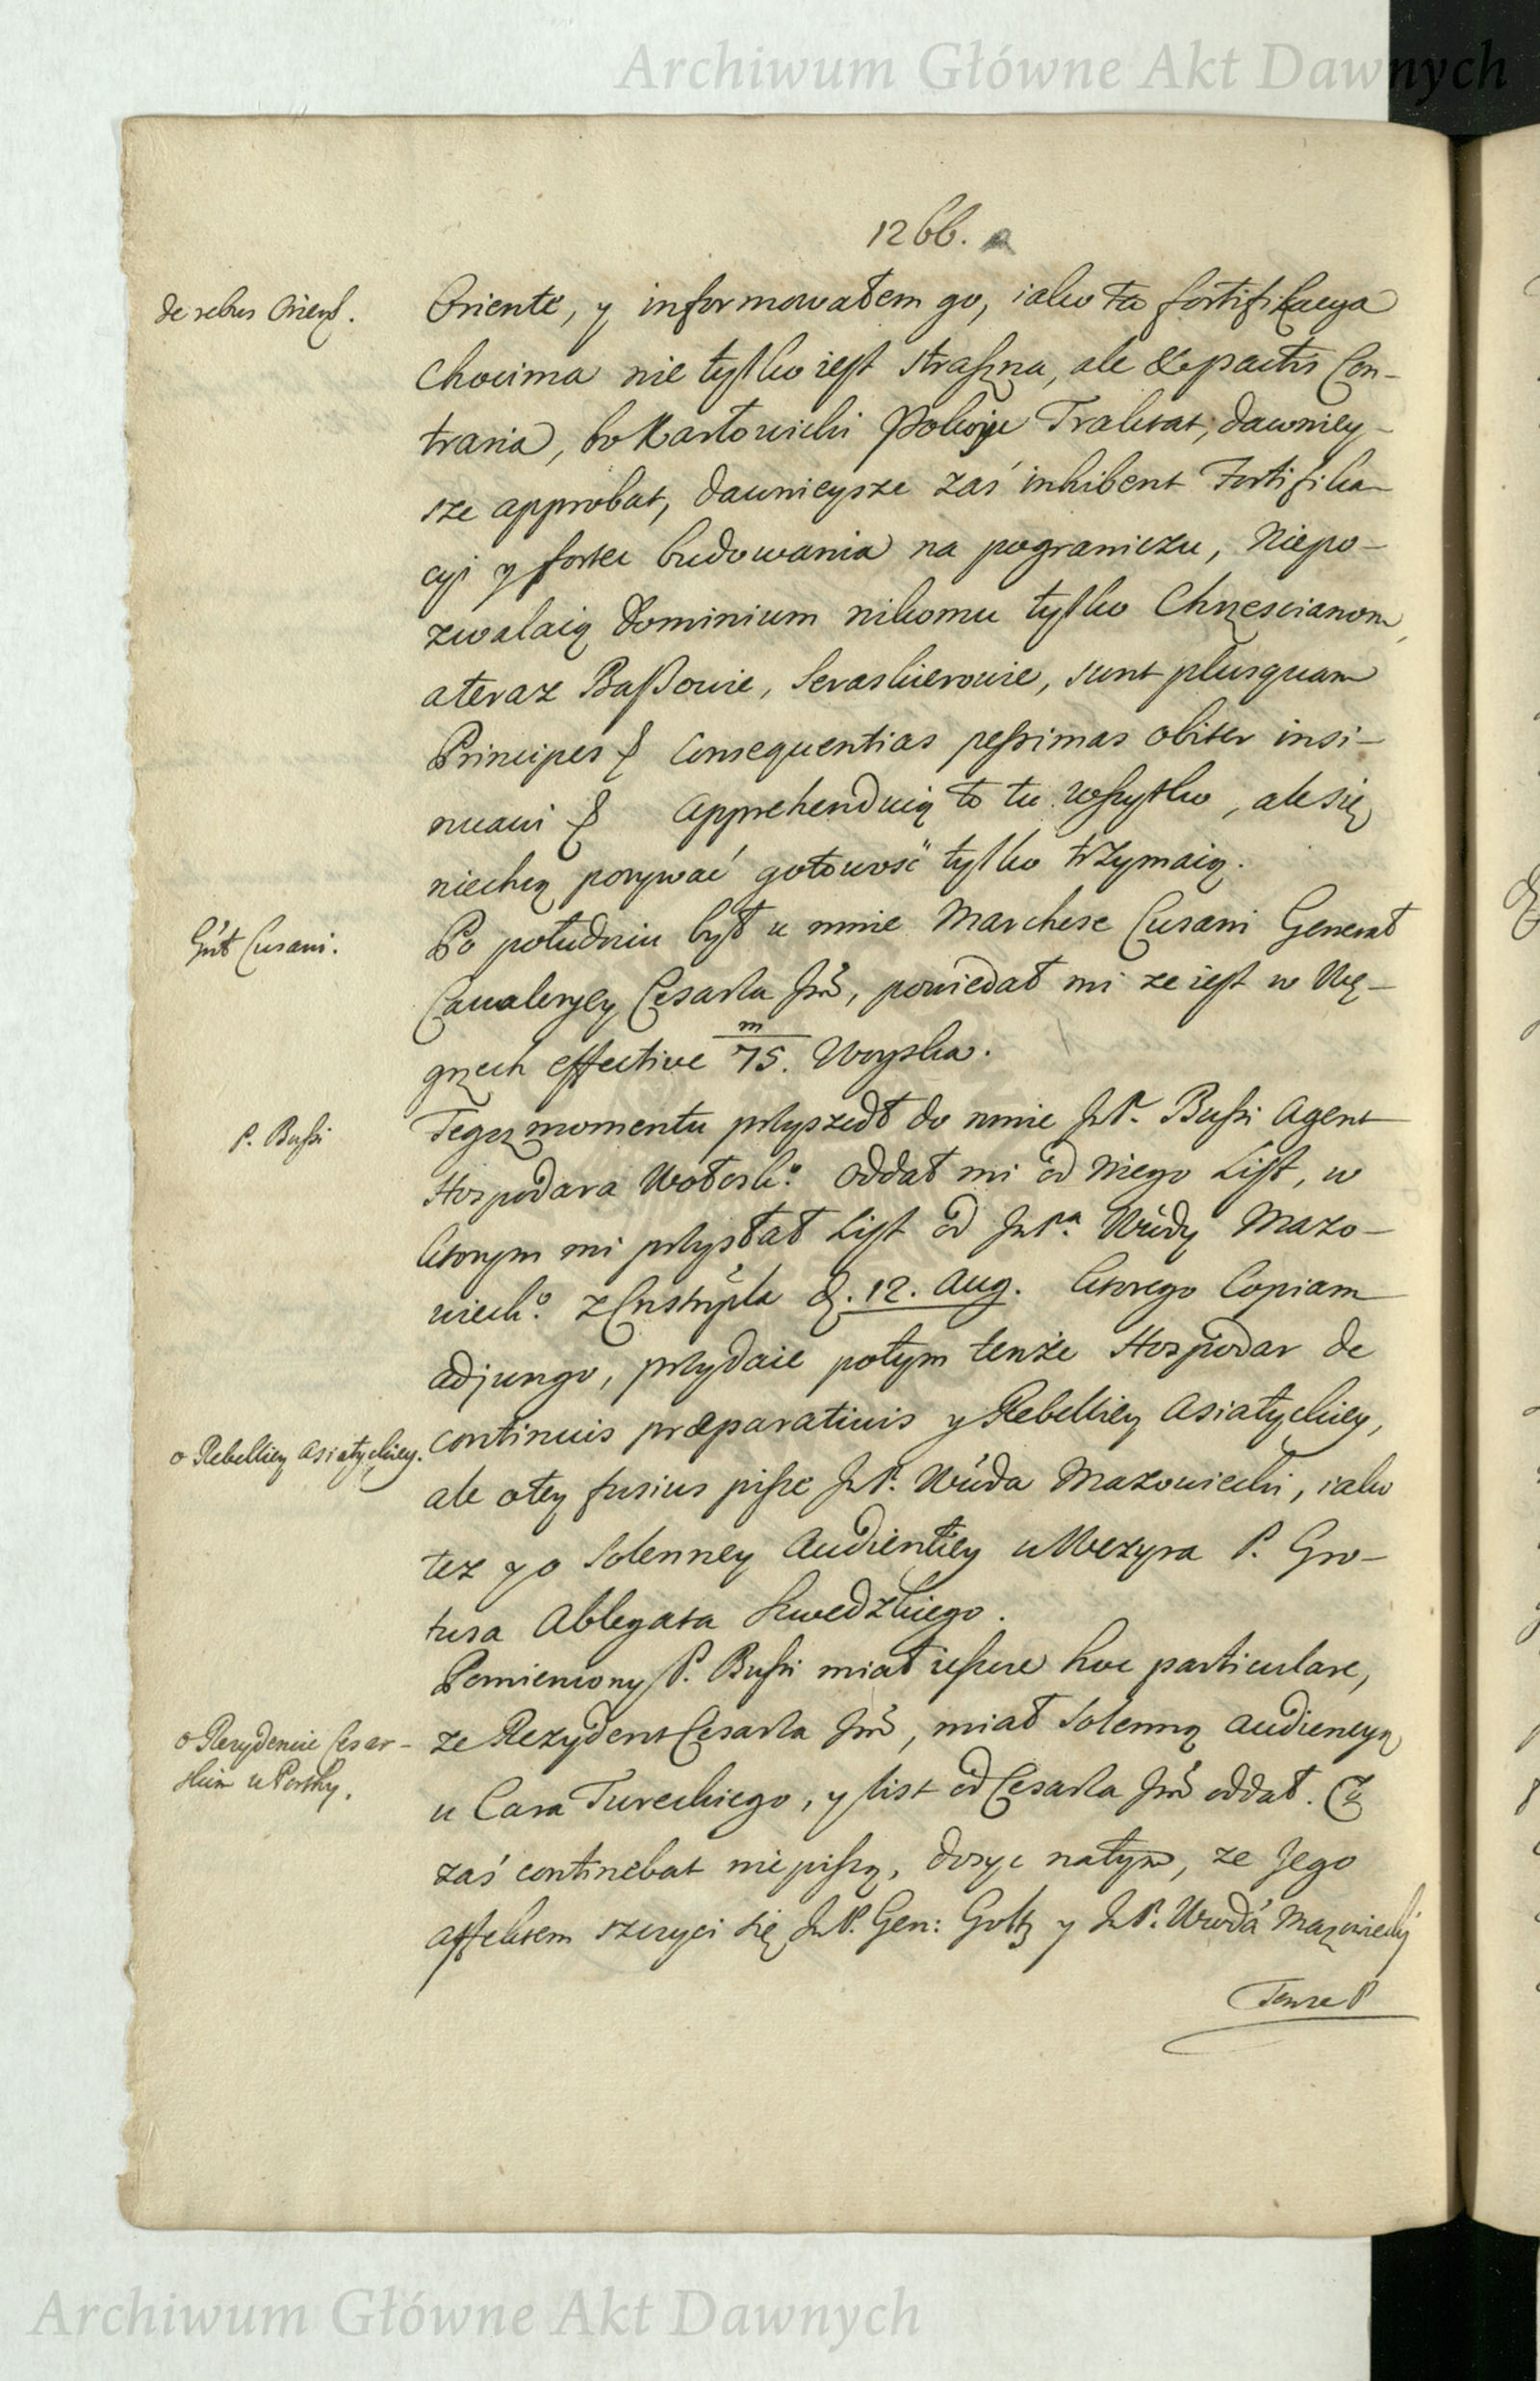 Archiwum Główne Akt Dawnych
1266.
de rebus Orient.
Oriente, y informowałem go, iako ta fortifikacya
Chocima nie tylko iest straszna, ale & pactis Con-
traria, bo Karłowicki Pokoju Traktat, dawniey-
sze approbat, dawnieysze zaś inhibent Fortifika-
cyi y fortec budowania na pograniczu, Niepo-
zwalaią Dominium nikomu tylko Chrzescianom,
ateraz Baszowie, Seraskierowie, sunt plusquam
Principes & Consequentias pessimas obiter insi-
nuavi & Apprehenduią to tu wszytko, ale się
niechcą porywać gotowość tylko trzymaią.
Gnł Cusani.
Po południu był u mnie Marchese Cusani Generał
Cavaleryey Cesarza Jmci, powiedał mi ze iest w Wę-
grzech effective m/75. Woyska.
P. Bussi
Tegoz momentu przyszedł do mnie JmP. Bussi Agent
Hospodara Wołosko: oddał mi od Niego List, w
ktorym mi przysłał List od JmPa. Wdy Mazo-
wieck.o z Cnstnpla d. 12. Aug. ktorego Copiam
adjungo, przydaie potym tenże Hospodar de
o Rebelliey Asiatyckiey.
continuis præparativis y Rebelliey Asiatyckiey,
ale otey fusius pisze JmP. Wda Mazowiecki, iako
tez y o Solenney Audientiey u Wezyra P. Gro-
tusa Ablegata Szwedzkiego.
Pomieniony P. Bussi miał ieszcze hoc particulare,
o Rezydencie Cesar-
skim u Porthy.
ze Rezydent Cesarza Jmci, miał Solenną audiencyą
u Cara Tureckiego, y list od Cesarza Jmci oddał. Co
zaś continebat nie piszą, dosyc natym, ze Jego
affektem szczyci się JmP. Gen: Goltz y JmP. Wwda Mazowiecki
Tenze P
Archiwum Główne Akt Dawnych